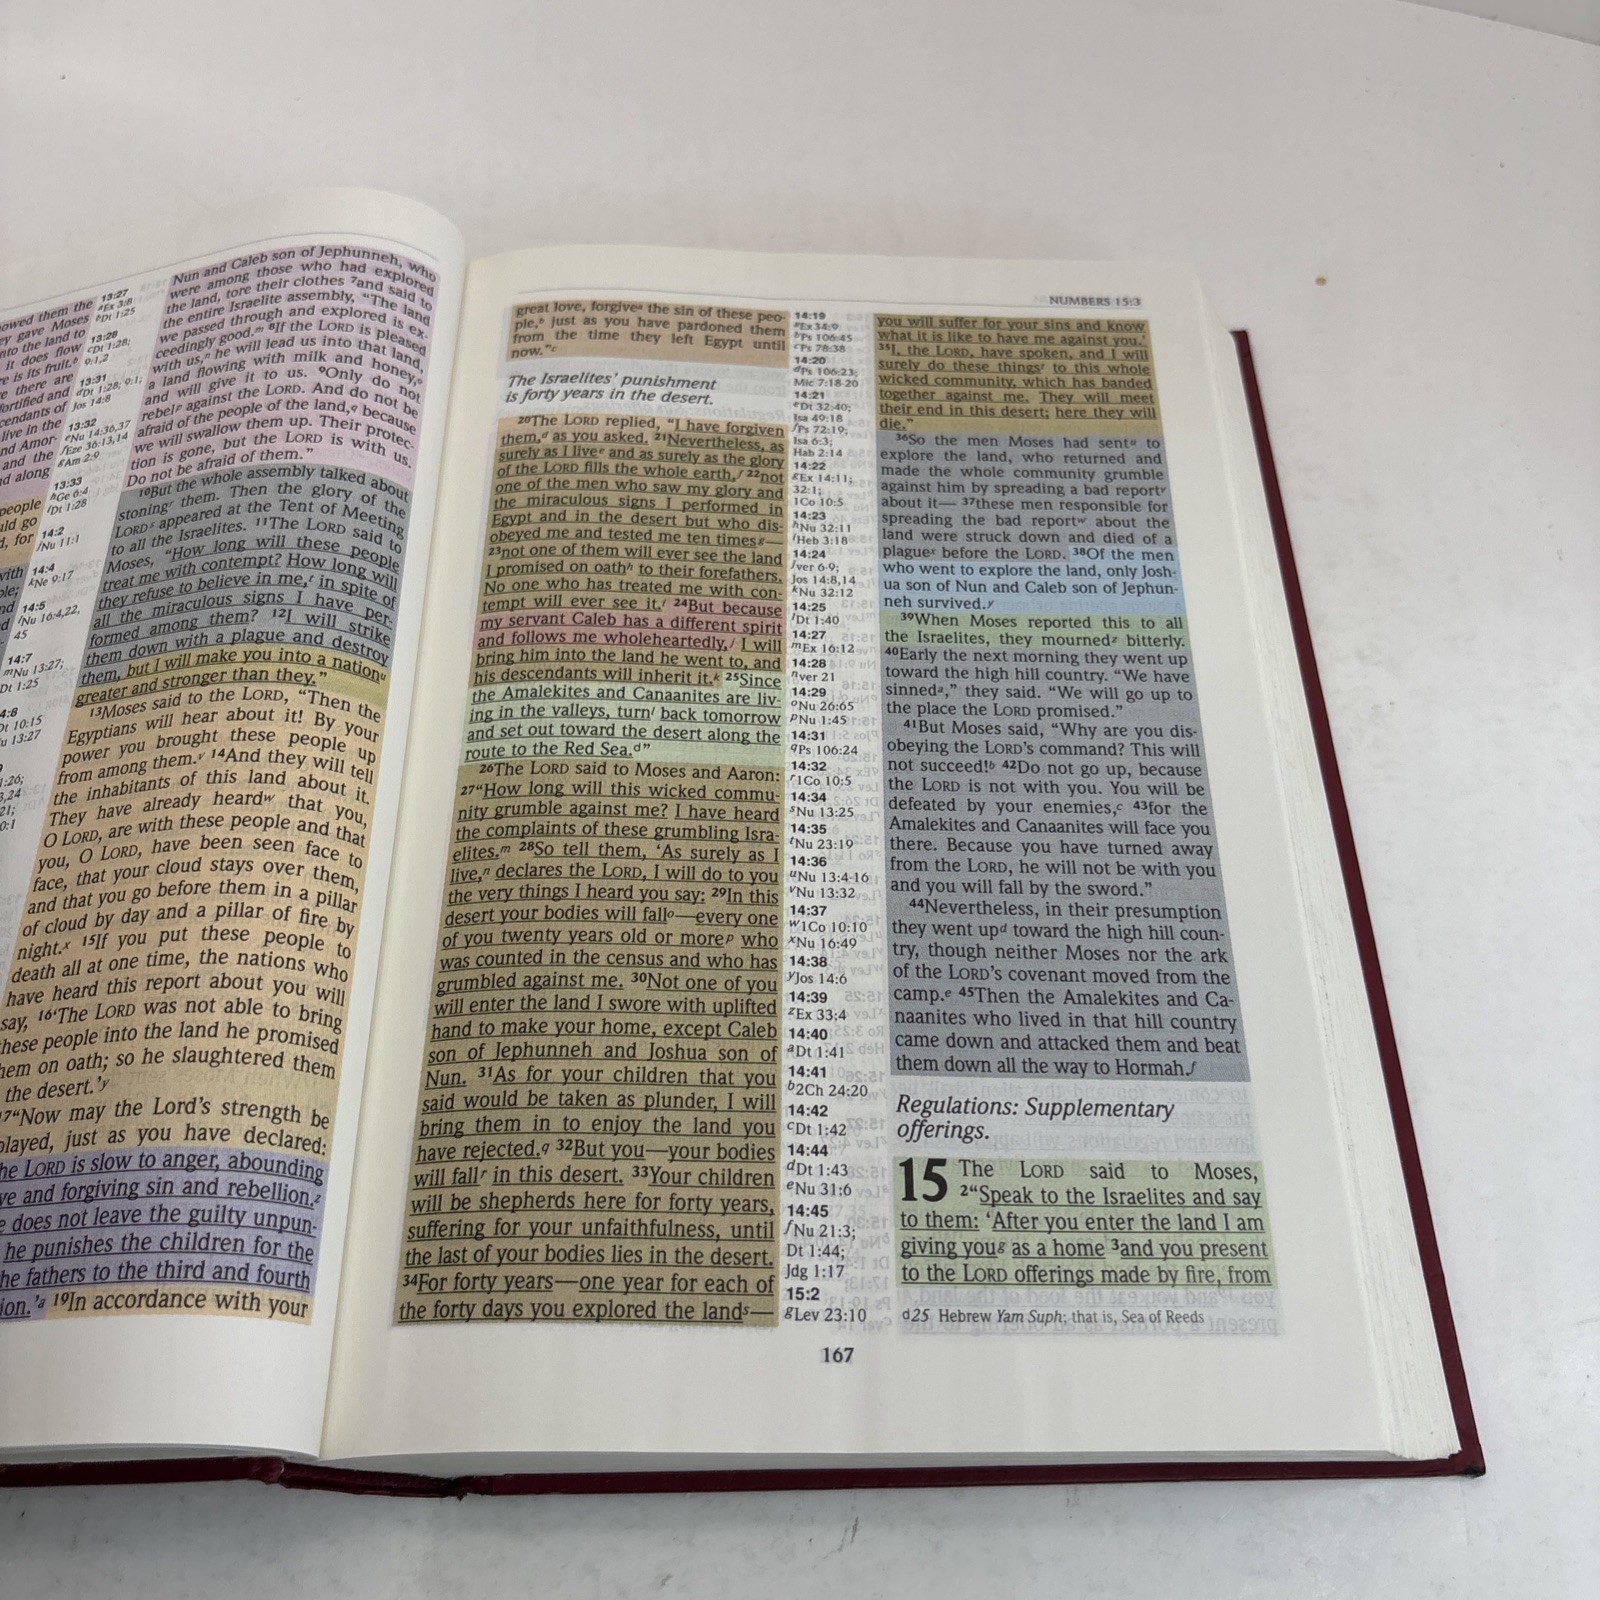 owed them the
ey gave Moses
nto the land to
it does flow
e is its fruit.b
there are
fortified and
cendants of
live in the
nd Amor-
and the
d along
people
uld go
d, for
with
13:27
aEx 3:8
bDt 1:25
13:28
cDt 1:28;
9:1,2
13:31
dDt 1:28; 9:1;
Jos 14:8
13:32
eNu 14:36,37
fEze 36:13,14
gAm 2:9
13:33
hGe 6:4
iDt 1:28
14:2
jNu 11:1
14:4
kNe 9:17
14:5
lNu 16:4,22,
45
14:7
mNu 13:27;
Dt 1:25
Nun and Caleb son of Jephunneh, who
were among those who had explored
the land, tore their clothes 7and said to
the entire Israelite assembly, “The land
we passed through and explored is ex-
ceedingly good.m 8If the LORD is pleased
with us,n he will lead us into that land,
a land flowing with milk and honey,o
and will give it to us. 9Only do not
rebelp against the LORD. And do not be
afraid of the people of the land,q because
we will swallow them up. Their protec-
tion is gone, but the LORD is with us.
Do not be afraid of them.”
10But the whole assembly talked about
stoningr them. Then the glory of the
LORDs appeared at the Tent of Meeting
to all the Israelites. 11The LORD said to
Moses, “How long will these people
treat me with contempt? How long will
they refuse to believe in me,t in spite of
all the miraculous signs I have per-
formed among them? 12I will strike
them down with a plague and destroy
them, but I will make you into a nationu
greater and stronger than they.”
13Moses said to the LORD, “Then the
Egyptians will hear about it! By your
power you brought these people up
from among them.v 14And they will tell
the inhabitants of this land about it.
They have already heardw that you,
O LORD, are with these people and that
you, O LORD, have been seen face to
face, that your cloud stays over them,
and that you go before them in a pillar
of cloud by day and a pillar of fire by
night.x 15If you put these people to
death all at one time, the nations who
have heard this report about you will
say, 16‘The LORD was not able to bring
these people into the land he promised
them on oath; so he slaughtered them
the desert.’y
17“Now may the Lord’s strength be
played, just as you have declared:
he LORD is slow to anger, abounding
ve and forgiving sin and rebellion.z
e does not leave the guilty unpun-
he punishes the children for the
he fathers to the third and fourth
ion.’a 19In accordance with your
NUMBERS 15:3
great love, forgivea the sin of these peo-
ple,b just as you have pardoned them
from the time they left Egypt until
now.”c
The Israelites’ punishment
is forty years in the desert.
20The LORD replied, “I have forgiven
them,d as you asked. 21Nevertheless, as
surely as I livee and as surely as the glory
of the LORD fills the whole earth,f 22not
one of the men who saw my glory and
the miraculous signs I performed in
Egypt and in the desert but who dis-
obeyed me and tested me ten timesg—
23not one of them will ever see the land
I promised on oathh to their forefathers.
No one who has treated me with con-
tempt will ever see it.i 24But because
my servant Caleb has a different spirit
and follows me wholeheartedly,j I will
bring him into the land he went to, and
his descendants will inherit it.k 25Since
the Amalekites and Canaanites are liv-
ing in the valleys, turnl back tomorrow
and set out toward the desert along the
route to the Red Sea.d”
26The LORD said to Moses and Aaron:
27“How long will this wicked commu-
nity grumble against me? I have heard
the complaints of these grumbling Isra-
elites.m 28So tell them, ‘As surely as I
live,n declares the LORD, I will do to you
the very things I heard you say: 29In this
desert your bodies will fallo—every one
of you twenty years old or morep who
was counted in the census and who has
grumbled against me. 30Not one of you
will enter the land I swore with uplifted
hand to make your home, except Caleb
son of Jephunneh and Joshua son of
Nun. 31As for your children that you
said would be taken as plunder, I will
bring them in to enjoy the land you
have rejected.q 32But you—your bodies
will fallr in this desert. 33Your children
will be shepherds here for forty years,
suffering for your unfaithfulness, until
the last of your bodies lies in the desert.
34For forty years—one year for each of
the forty days you explored the lands—
14:19
aEx 34:9
bPs 106:45
cPs 78:38
14:20
dPs 106:23;
Mic 7:18-20
14:21
eDt 32:40;
Isa 49:18
fPs 72:19;
Isa 6:3;
Hab 2:14
14:22
gEx 14:11;
32:1;
1Co 10:5
14:23
hNu 32:11
iHeb 3:18
14:24
jver 6-9;
Jos 14:8,14
kNu 32:12
14:25
lDt 1:40
14:27
mEx 16:12
14:28
nver 21
14:29
oNu 26:65
pNu 1:45
14:31
qPs 106:24
14:32
r1Co 10:5
14:34
sNu 13:25
14:35
tNu 23:19
14:36
uNu 13:4-16
vNu 13:32
14:37
w1Co 10:10
xNu 16:49
14:38
yJos 14:6
14:39
zEx 33:4
14:40
aDt 1:41
14:41
b2Ch 24:20
14:42
cDt 1:42
14:44
dDt 1:43
eNu 31:6
14:45
fNu 21:3;
Dt 1:44;
Jdg 1:17
15:2
gLev 23:10
you will suffer for your sins and know
what it is like to have me against you.’
35I, the LORD, have spoken, and I will
surely do these thingst to this whole
wicked community, which has banded
together against me. They will meet
their end in this desert; here they will
die.”
36So the men Moses had sentu to
explore the land, who returned and
made the whole community grumble
against him by spreading a bad reportv
about it— 37these men responsible for
spreading the bad reportw about the
land were struck down and died of a
plaguex before the LORD. 38Of the men
who went to explore the land, only Josh-
ua son of Nun and Caleb son of Jephun-
neh survived.y
39When Moses reported this to all
the Israelites, they mournedz bitterly.
40Early the next morning they went up
toward the high hill country. “We have
sinneda,” they said. “We will go up to
the place the LORD promised.”
41But Moses said, “Why are you dis-
obeying the LORD’s command? This will
not succeed!b 42Do not go up, because
the LORD is not with you. You will be
defeated by your enemies,c 43for the
Amalekites and Canaanites will face you
there. Because you have turned away
from the LORD, he will not be with you
and you will fall by the sword.”
44Nevertheless, in their presumption
they went upd toward the high hill coun-
try, though neither Moses nor the ark
of the LORD’s covenant moved from the
camp.e 45Then the Amalekites and Ca-
naanites who lived in that hill country
came down and attacked them and beat
them down all the way to Hormah.f
Regulations: Supplementary
offerings.
15 The LORD said to Moses,
2“Speak to the Israelites and say
to them: ‘After you enter the land I am
giving youg as a home 3and you present
to the LORD offerings made by fire, from
d25 Hebrew Yam Suph; that is, Sea of Reeds
167